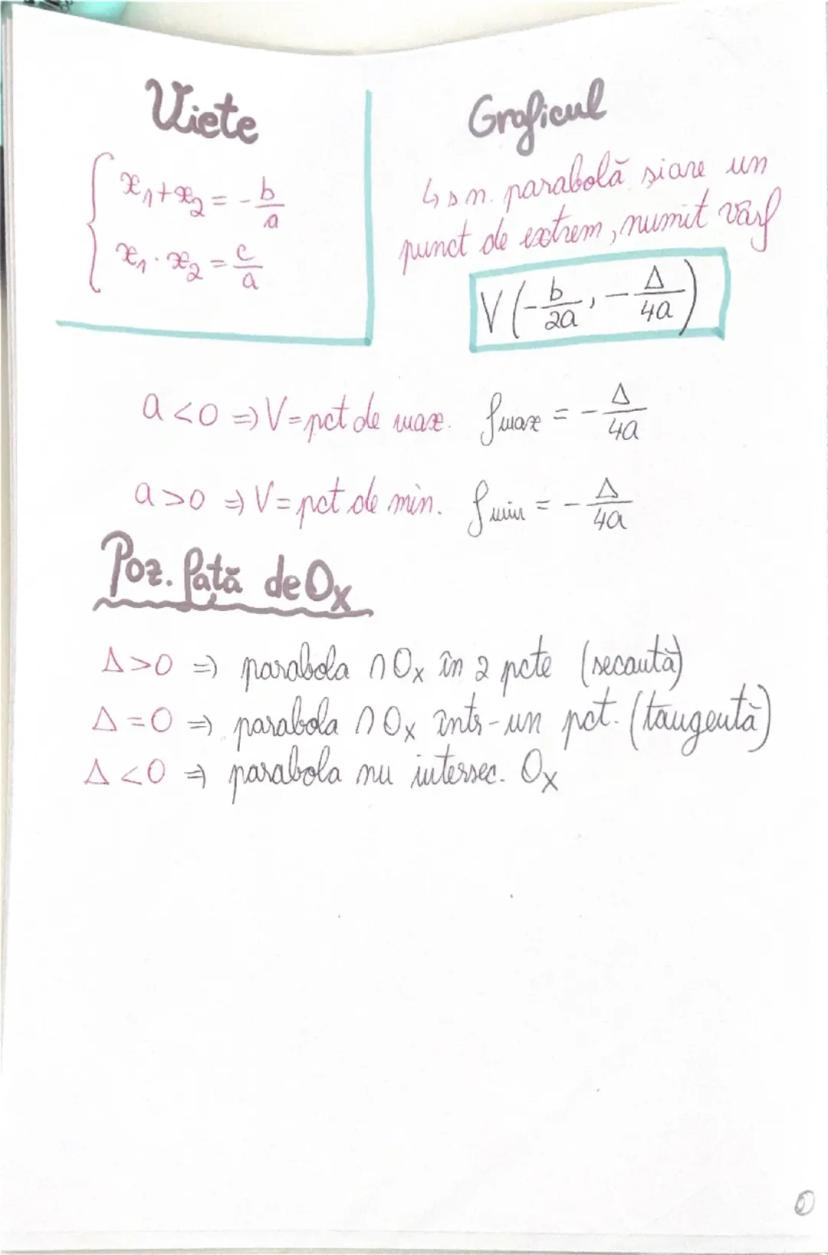 Viete
x₁+x₂ = -b/a
x₁·x₂ = c/a
Graficul
↳ s.n. parabolă și are un
punct de extrem, numit vârf
V(-b/2a, -Δ/4a)
a<0 ⇒ V=pct de max. fmax = -Δ/4a
a>0 ⇒ V=pct de min. fmin = -Δ/4a
Poz. față de Ox
Δ>0 ⇒ parabola ∩ Ox în 2 pcte (secantă)
Δ=0 ⇒ parabola ∩ Ox într-un pct. (tangentă)
Δ<0 ⇒ parabola nu intersec. Ox